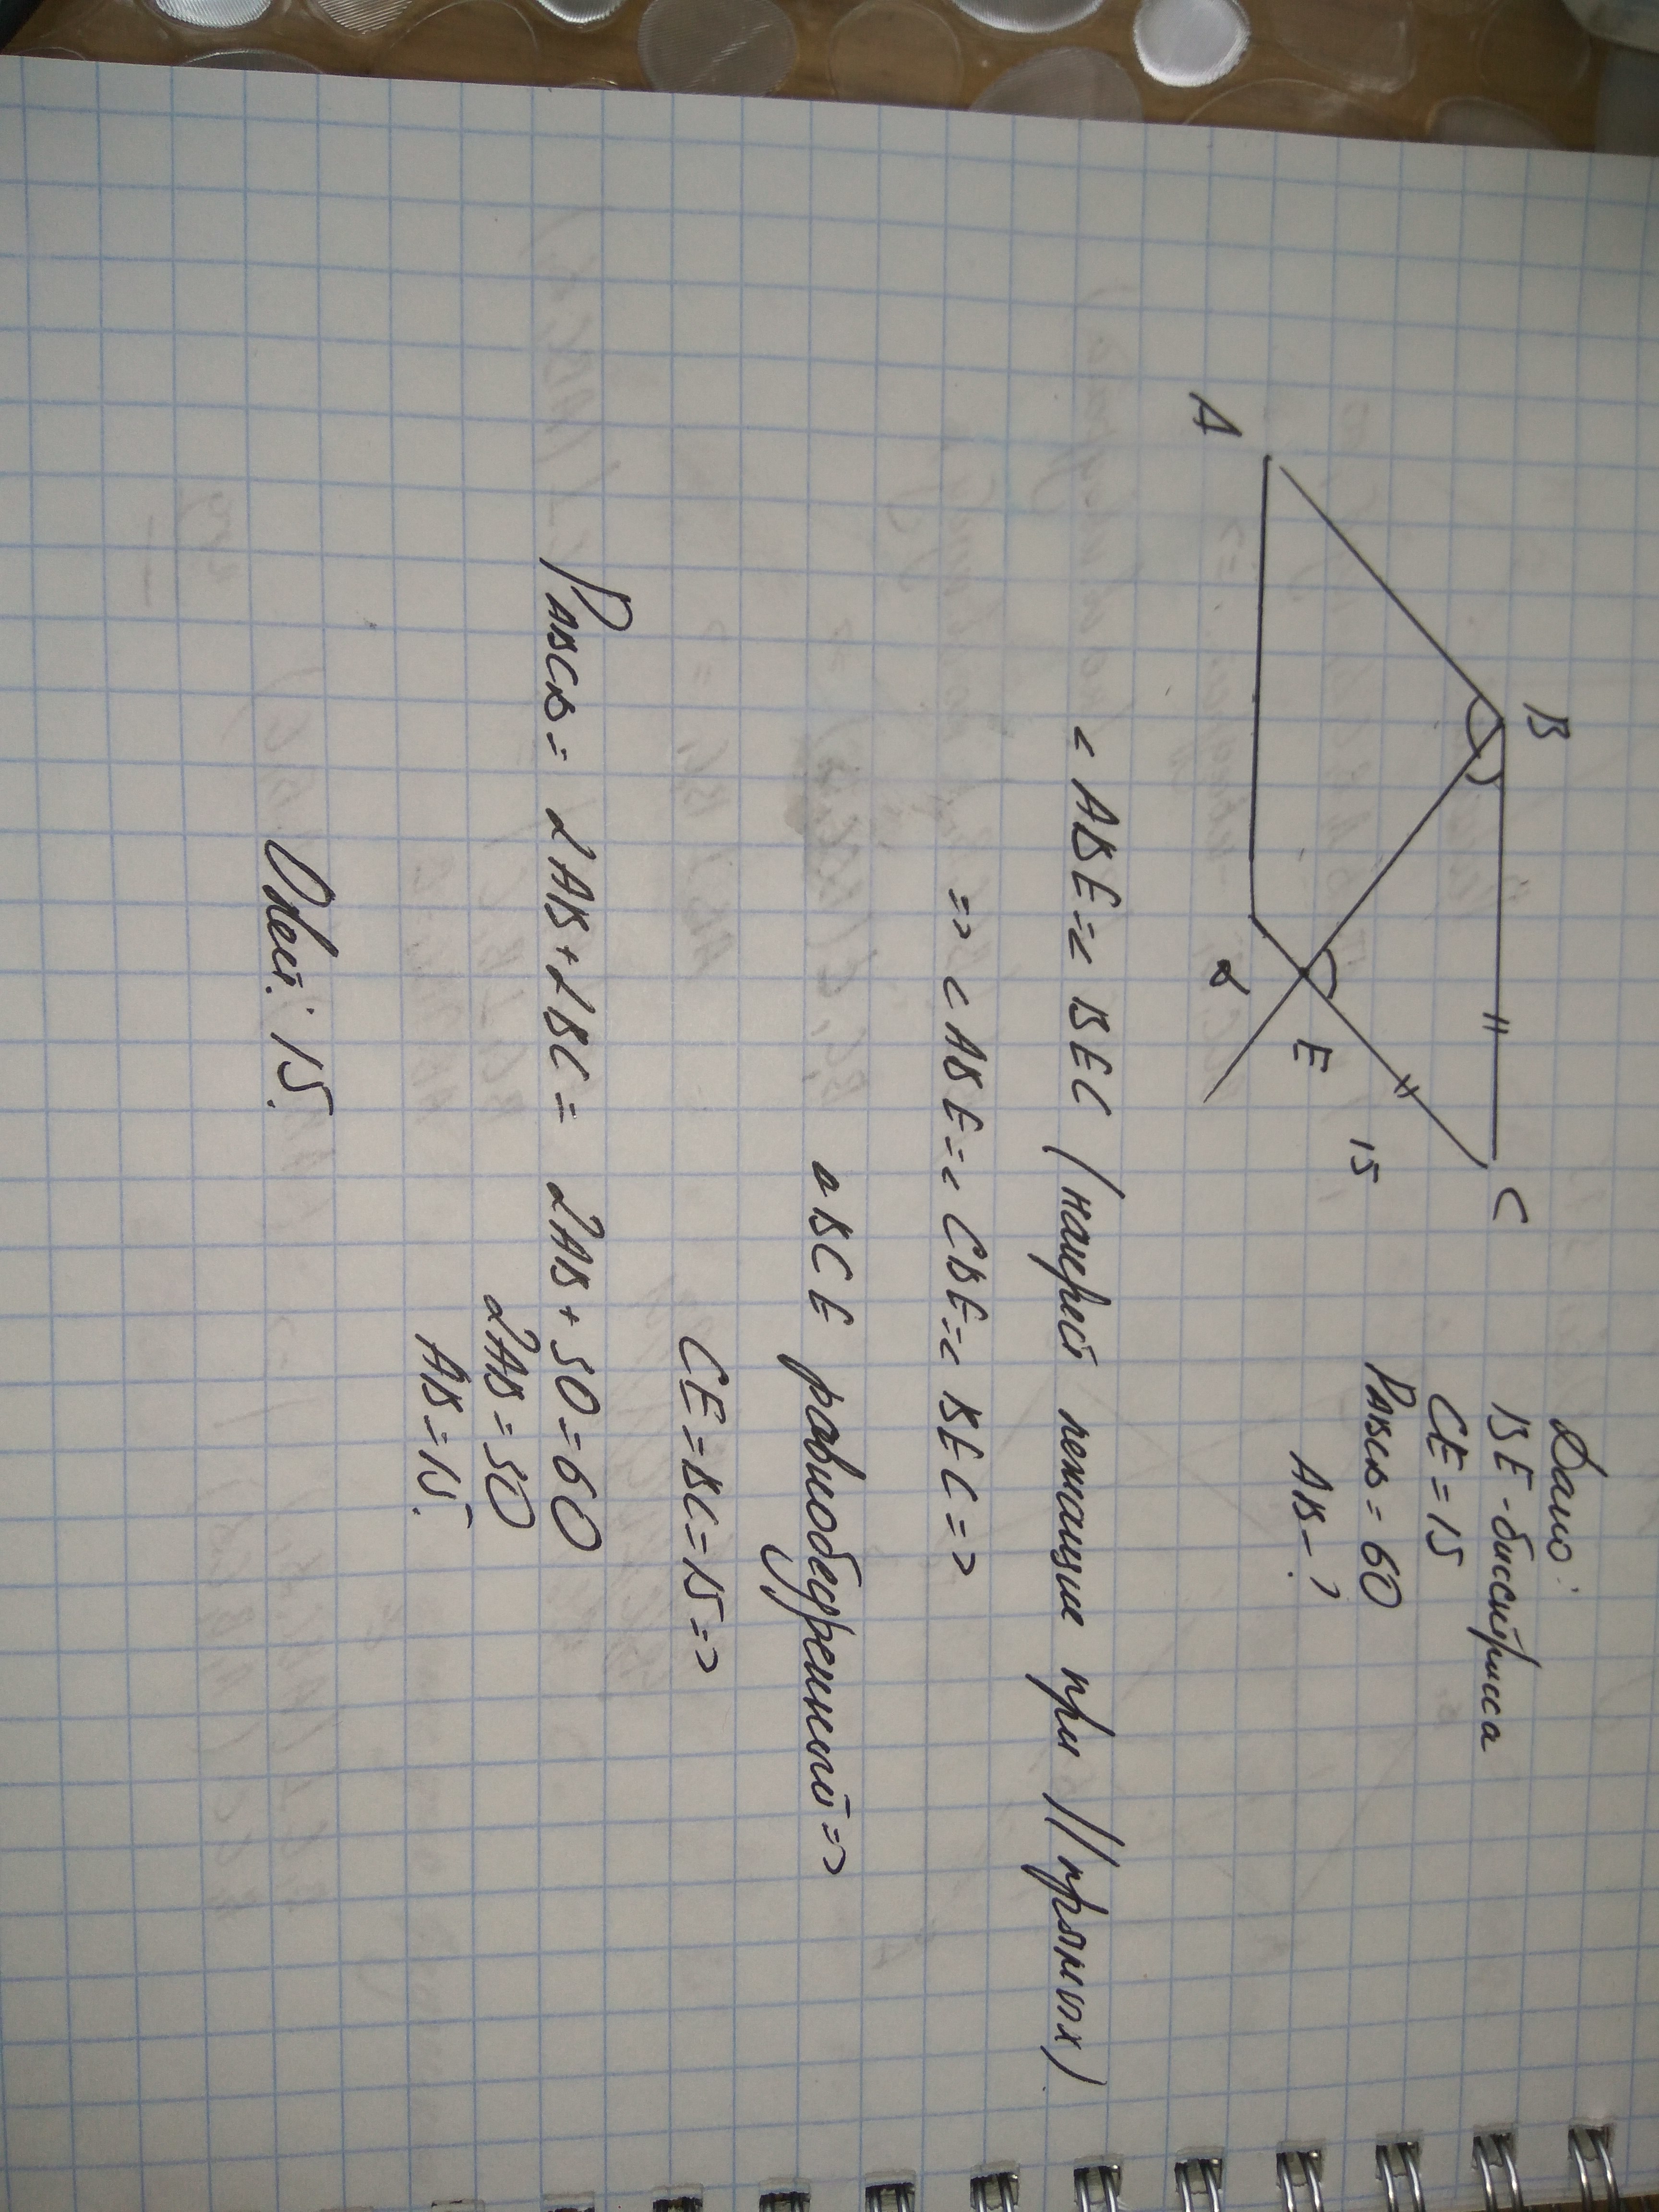 Дано:
BE-биссектриса
CE=15
Pавсд=60
AB-?
A
B
C
15
E
д
< ABE=< BEC (накрест лежащие при // прямых)
=> < ABE=< CBE=< BEC=>
▵ BCE равнобедренный=>
CE=BC=15=>
Pавсд= 2AB+2BC= 2AB+30=60
2AB=30
AB=15.
Ответ: 15.